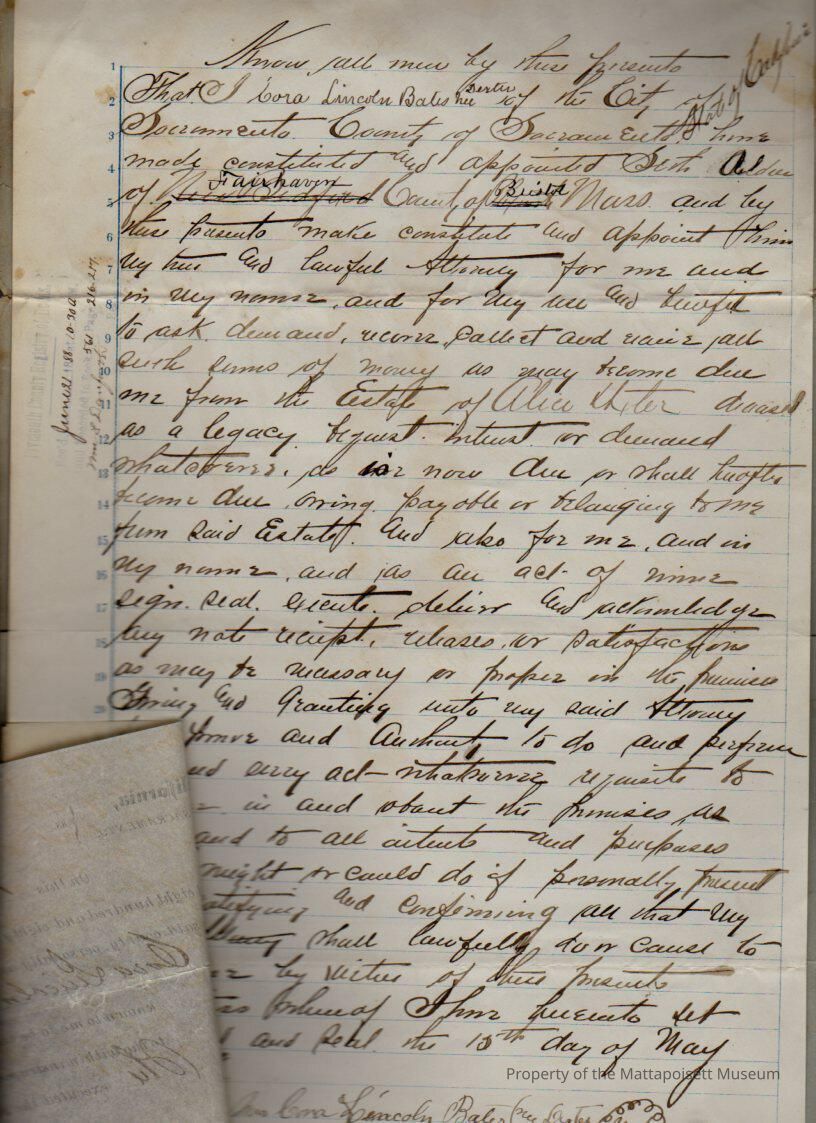 State of California
1 Know all men by these presents
2 That I Cora Lincoln Bates nee Dexter of the City of
3 Sacramento County of Sacramento have
4 made constituted and appointed Seth Alden
5 of Fairhaven County of Bristol Mass. and by
6 these presents make constitute and appoint him
7 my true and lawful Attorney for me and
8 in my name, and for my use and benefit
9 to ask, demand, recover, collect and receive all
10 such sums of money as may become due
11 me from the Estate of Alice Dexter deceased
12 as a legacy, bequest, interest or demand
13 whatsoever, as is now due or shall hereafter
14 become due, owing, payable or belonging to me
15 from said Estate. And also for me, and in
16 my name, and as an act of mine
17 sign, seal, execute, deliver and acknowledge
18 any note receipt, releases, or satisfactions
19 as may be necessary or proper in the premises
20 Giving and Granting unto my said Attorney
power and Authority to do and perform
and every act whatsoever requisite to
in and about the premises as
and to all intents and purposes
might or could do if personally present
ratifying and confirming all that my
Attorney shall lawfully do or cause to
by virtue of these presents
whereof I have hereunto set
and seal the 15th day of May
Cora Lincoln Bates (nee Dexter
June 21 1888 10-30 A.M.
561 Page 216-217
California,
SACRAMENTO
On this
eight hundred and eigh
said county, personally
Cora Lincoln
known to me to be
executed the
Property of the Mattapoisett Museum